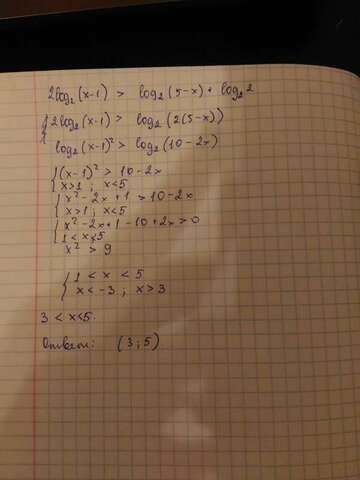 2log₂(x-1) > log₂(5-x) + log₂2
{2log₂(x-1) > log₂(2(5-x))
log₂(x-1)² > log₂(10-2x)
{(x-1)² > 10-2x
x>1 ; x<5
{x²-2x+1 > 10-2x
x>1 ; x<5
{x²-2x+1-10+2x>0
1<x<5
x² > 9
{1 < x < 5
x<-3 ; x>3
3 < x<5.
Ответ: (3;5)